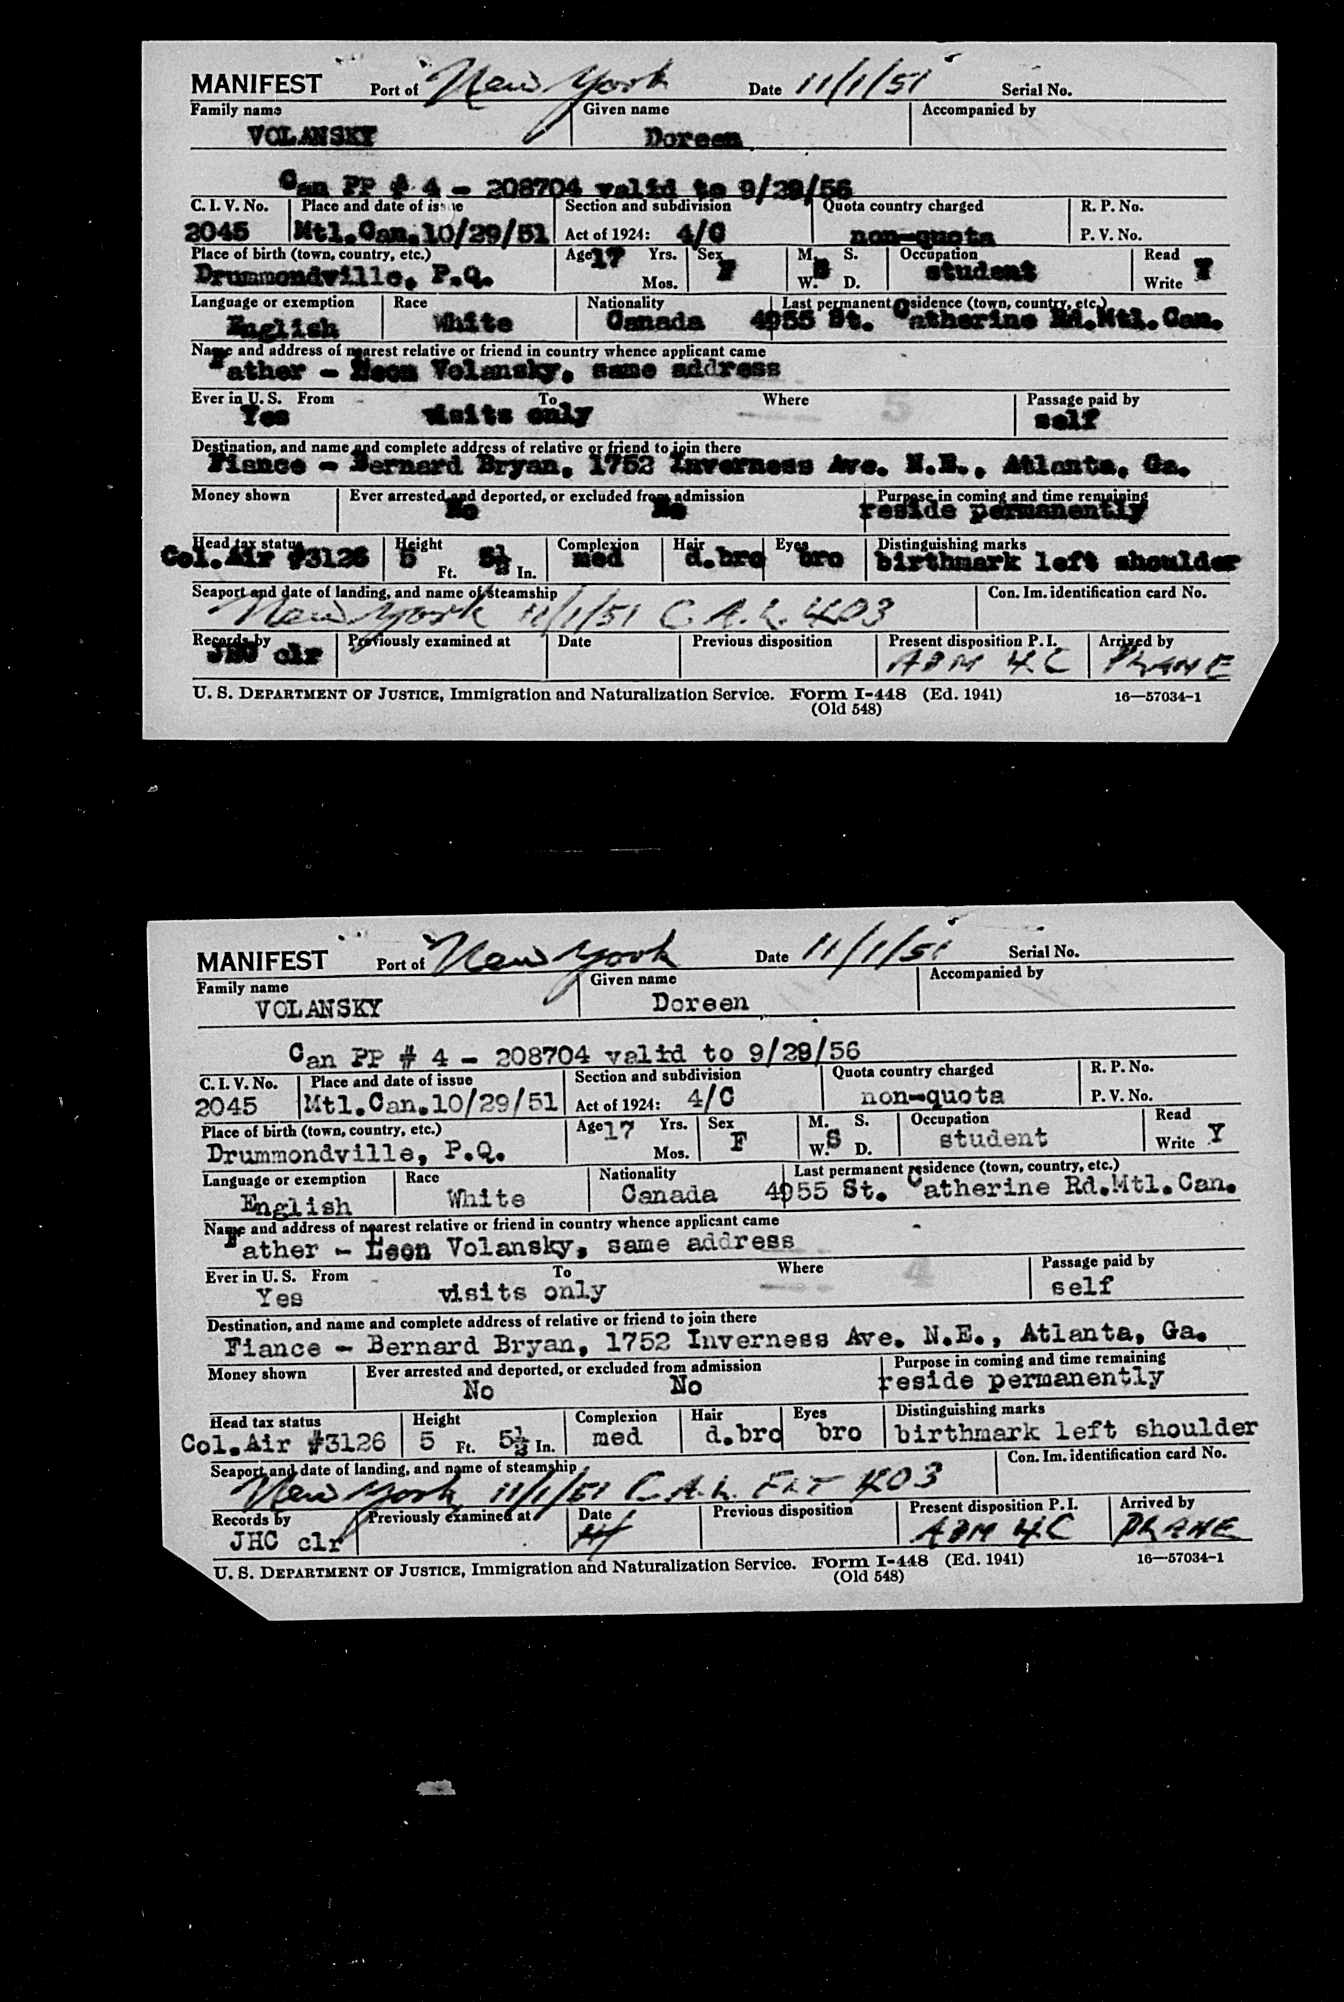 MANIFEST Port of New York Date 11/1/51 Serial No.
Family name Given name Accompanied by
VOLANSKY Doreen
Can PP # 4 - 208704 valid to 9/29/56
C. I. V. No. Place and date of issue Section and subdivision Quota country charged R. P. No.
2045 Mtl.Can.10/29/51 Act of 1924: 4/C non-quota P. V. No.
Place of birth (town, country, etc.) Age 17 Yrs. Sex M. S. Occupation Read
Drummondville, P.Q. Mos. F W. S D. student Write Y
Language or exemption Race Nationality Last permanent residence (town, country, etc.)
English White Canada 4955 St. Catherine Rd.Mtl.Can.
Name and address of nearest relative or friend in country whence applicant came
Father - Leon Volansky, same address
Ever in U. S. From To Where Passage paid by
Yes visits only 5 self
Destination, and name and complete address of relative or friend to join there
Fiance - Bernard Bryan, 1752 Inverness Ave. N.E., Atlanta, Ga.
Money shown Ever arrested and deported, or excluded from admission Purpose in coming and time remaining
No No reside permanently
Head tax status Height Complexion Hair Eyes Distinguishing marks
Col.Air #3126 5 Ft. 5½ In. med d.bro bro birthmark left shoulder
Seaport and date of landing, and name of steamship Con. Im. identification card No.
New York 11/1/51 C.A.L. 403
Records by Previously examined at Date Previous disposition Present disposition P. I. Arrived by
JHC clr ADM 4C PLANE
U. S. DEPARTMENT OF JUSTICE, Immigration and Naturalization Service. Form I-448 (Ed. 1941) 16—57034-1
(Old 548)
MANIFEST Port of New York Date 11/1/51 Serial No.
Family name Given name Accompanied by
VOLANSKY Doreen
Can PP # 4 - 208704 valid to 9/29/56
C. I. V. No. Place and date of issue Section and subdivision Quota country charged R. P. No.
2045 Mtl.Can.10/29/51 Act of 1924: 4/C non-quota P. V. No.
Place of birth (town, country, etc.) Age 17 Yrs. Sex M. S. Occupation Read
Drummondville, P.Q. Mos. F W. S D. student Write Y
Language or exemption Race Nationality Last permanent residence (town, country, etc.)
English White Canada 4955 St. Catherine Rd.Mtl.Can.
Name and address of nearest relative or friend in country whence applicant came
Father - Leon Volansky, same address
Ever in U. S. From To Where Passage paid by
Yes visits only 4 self
Destination, and name and complete address of relative or friend to join there
Fiance - Bernard Bryan, 1752 Inverness Ave. N.E., Atlanta, Ga.
Money shown Ever arrested and deported, or excluded from admission Purpose in coming and time remaining
No No reside permanently
Head tax status Height Complexion Hair Eyes Distinguishing marks
Col.Air #3126 5 Ft. 5½ In. med d.bro bro birthmark left shoulder
Seaport and date of landing, and name of steamship Con. Im. identification card No.
New York 11/1/51 C.A.L. FLT 403
Records by Previously examined at Date Previous disposition Present disposition P. I. Arrived by
JHC clr ADM 4C PLANE
U. S. DEPARTMENT OF JUSTICE, Immigration and Naturalization Service. Form I-448 (Ed. 1941) 16—57034-1
(Old 548)